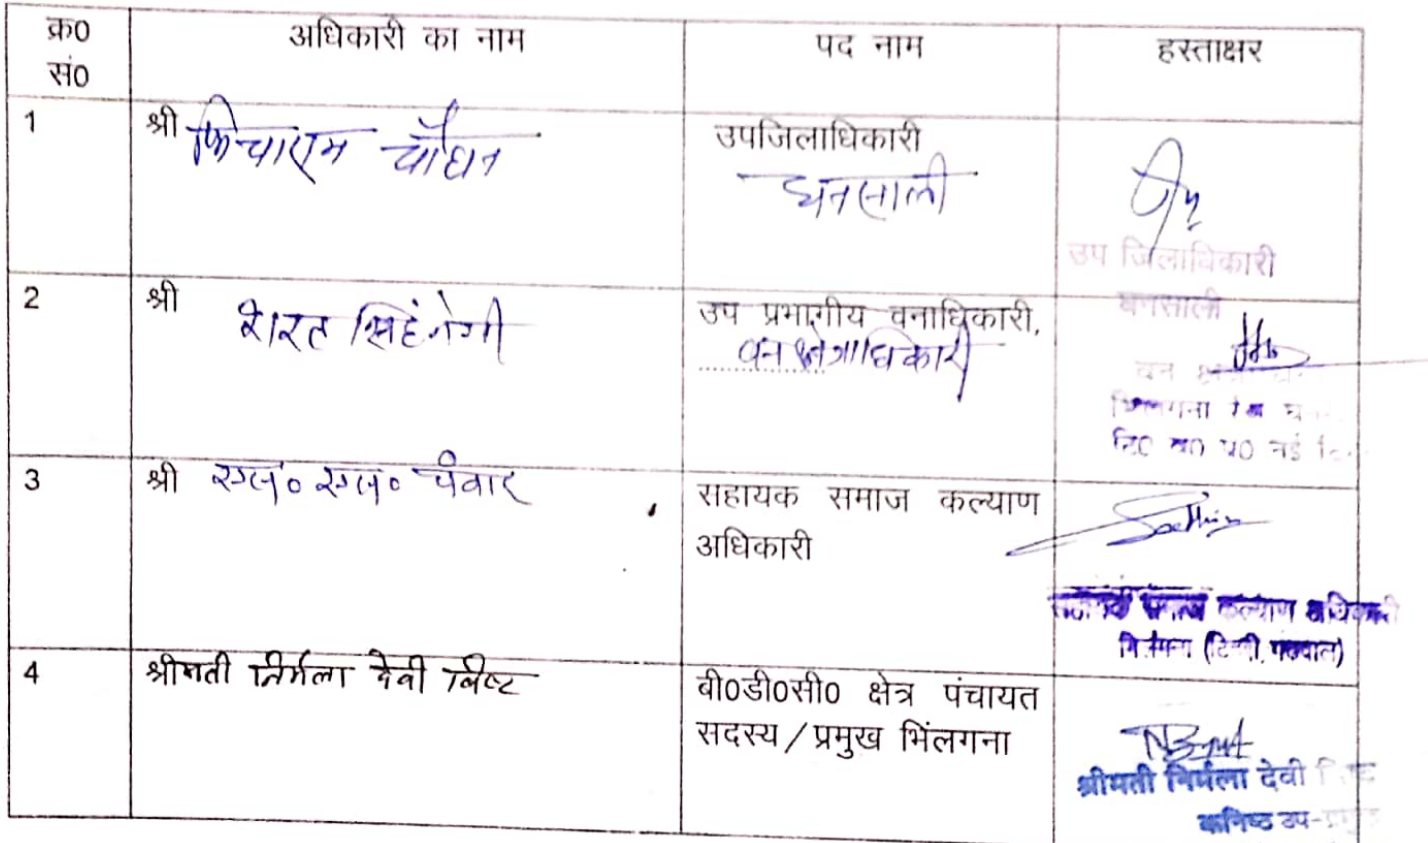 क्र0 सं0 अधिकारी का नाम पद नाम हस्ताक्षर
1 श्री फिंचाराम चौहान उपजिलाधिकारी
घनसाली
उप जिलाधिकारी
घनसाली
2 श्री शरत सिंह नेगी उप प्रभागीय वनाधिकारी,
वन क्षेत्राधिकारी
वन
भिलंगना
3 श्री एल० एल० पंवार सहायक समाज कल्याण
अधिकारी
समाज कल्याण अधिकारी
4 श्रीमती निर्मला देवी बिष्ट बी0डी0सी0 क्षेत्र पंचायत
सदस्य/प्रमुख भिंलगना
श्रीमती निर्मला देवी
कनिष्ठ उप-